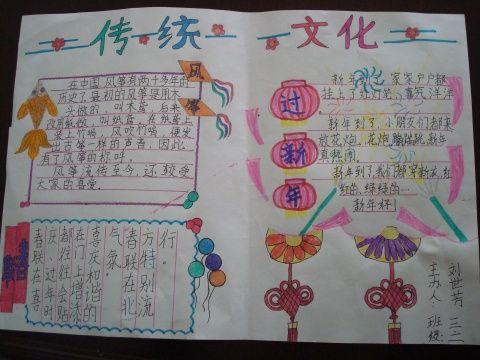 传统文化
风筝
在中国,风筝有两千多年的
历史了最初的风筝是用木
头做的,叫木鸢,后来
改用纸做,叫纸鸢,在纸鸢上
装上竹哨,风吹竹哨,便发
出古筝一样的声音,因此
有了风筝的称呼。
风筝流传至今,还较受
大家的喜爱。
过新年
家家户户都
挂上了红灯笼,喜气洋洋
新年到了,小朋友们都来
放花炮,花炮蹦蹦跳,新年
真热闹。
新年到了,我们都穿新衣,红
红的、绿绿的…
新年好!
春联
春联在喜
庆、过年时
都往往会贴
在门上增添
喜庆和谐的
气氛。
春联在北
方特别流
行。
主办人:刘世芳
班级:三二